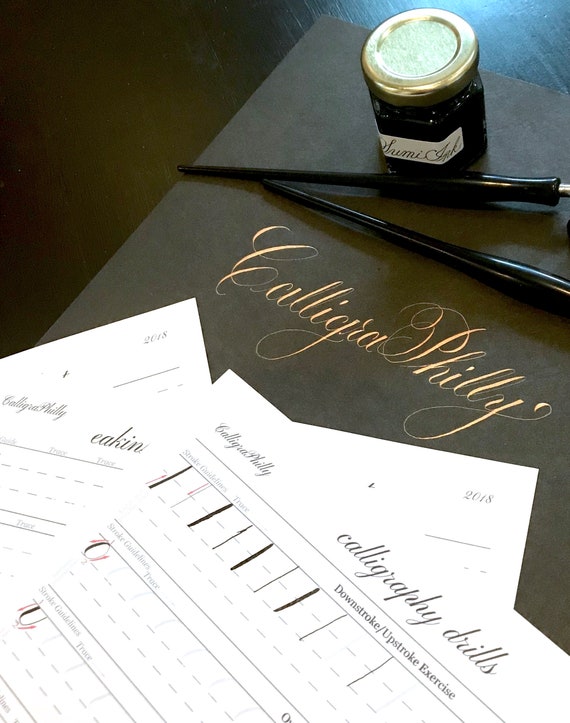 Sumi Ink
CalligraPhilly
2018
CalligraPhilly
Trace
Trace
2018
CalligraPhilly
calligraphy drills
Downstroke/Upstroke Exercise
Stroke Guidelines
Trace
Stroke Guidelines
Trace
Stroke Guidelines
Trace